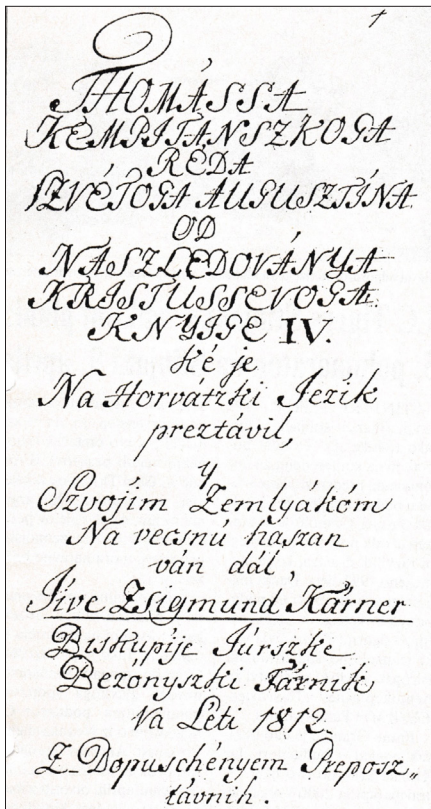 THOMÁSSA
KEMPITANSZKOGA
RÉDA
SZVÉTOGA AUGUSZTÍNA
OD
NASZLEDOVÁNYA
KRISTUSSEVOGA
KNYIGE IV.
Ké je
Na Horvátzki Jezik
preztávil,
y
Szvojim Zemlyákóm
Na vecsnú haszan
ván dál,
Jive Zsigmund Kárner
Biskupije Júrszke
Bezónyszki Fárnik
Va Leti 1812
Z-Dopuschényem Preposz„
távnih.